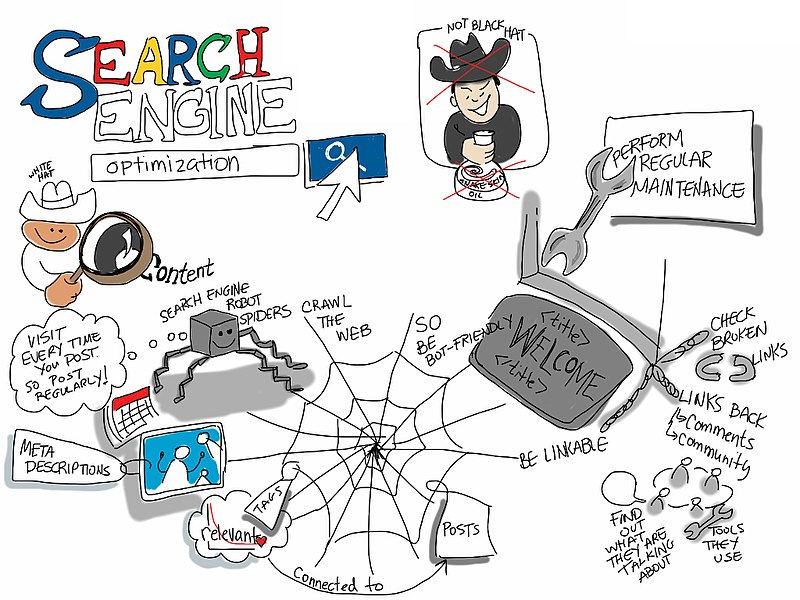 SEARCH
ENGINE
optimization
NOT BLACK HAT
SNAKE SKIN
OIL
PERFORM
REGULAR
MAINTENANCE
WHITE
HAT
Content
SEARCH ENGINE
ROBOT
SPIDERS
CRAWL
THE
WEB
SO
BE
BOT-FRIENDLY
<title>
WELCOME
</title>
CHECK
BROKEN
LINKS
VISIT
EVERY TIME
YOU POST.
SO POST
REGULARLY!
LINKS BACK
Comments
Community
BE LINKABLE
META
DESCRIPTIONS
TAGS
relevant
POSTS
Connected to
FIND
OUT
WHAT
THEY ARE
TALKING
ABOUT
TOOLS
THEY
USE